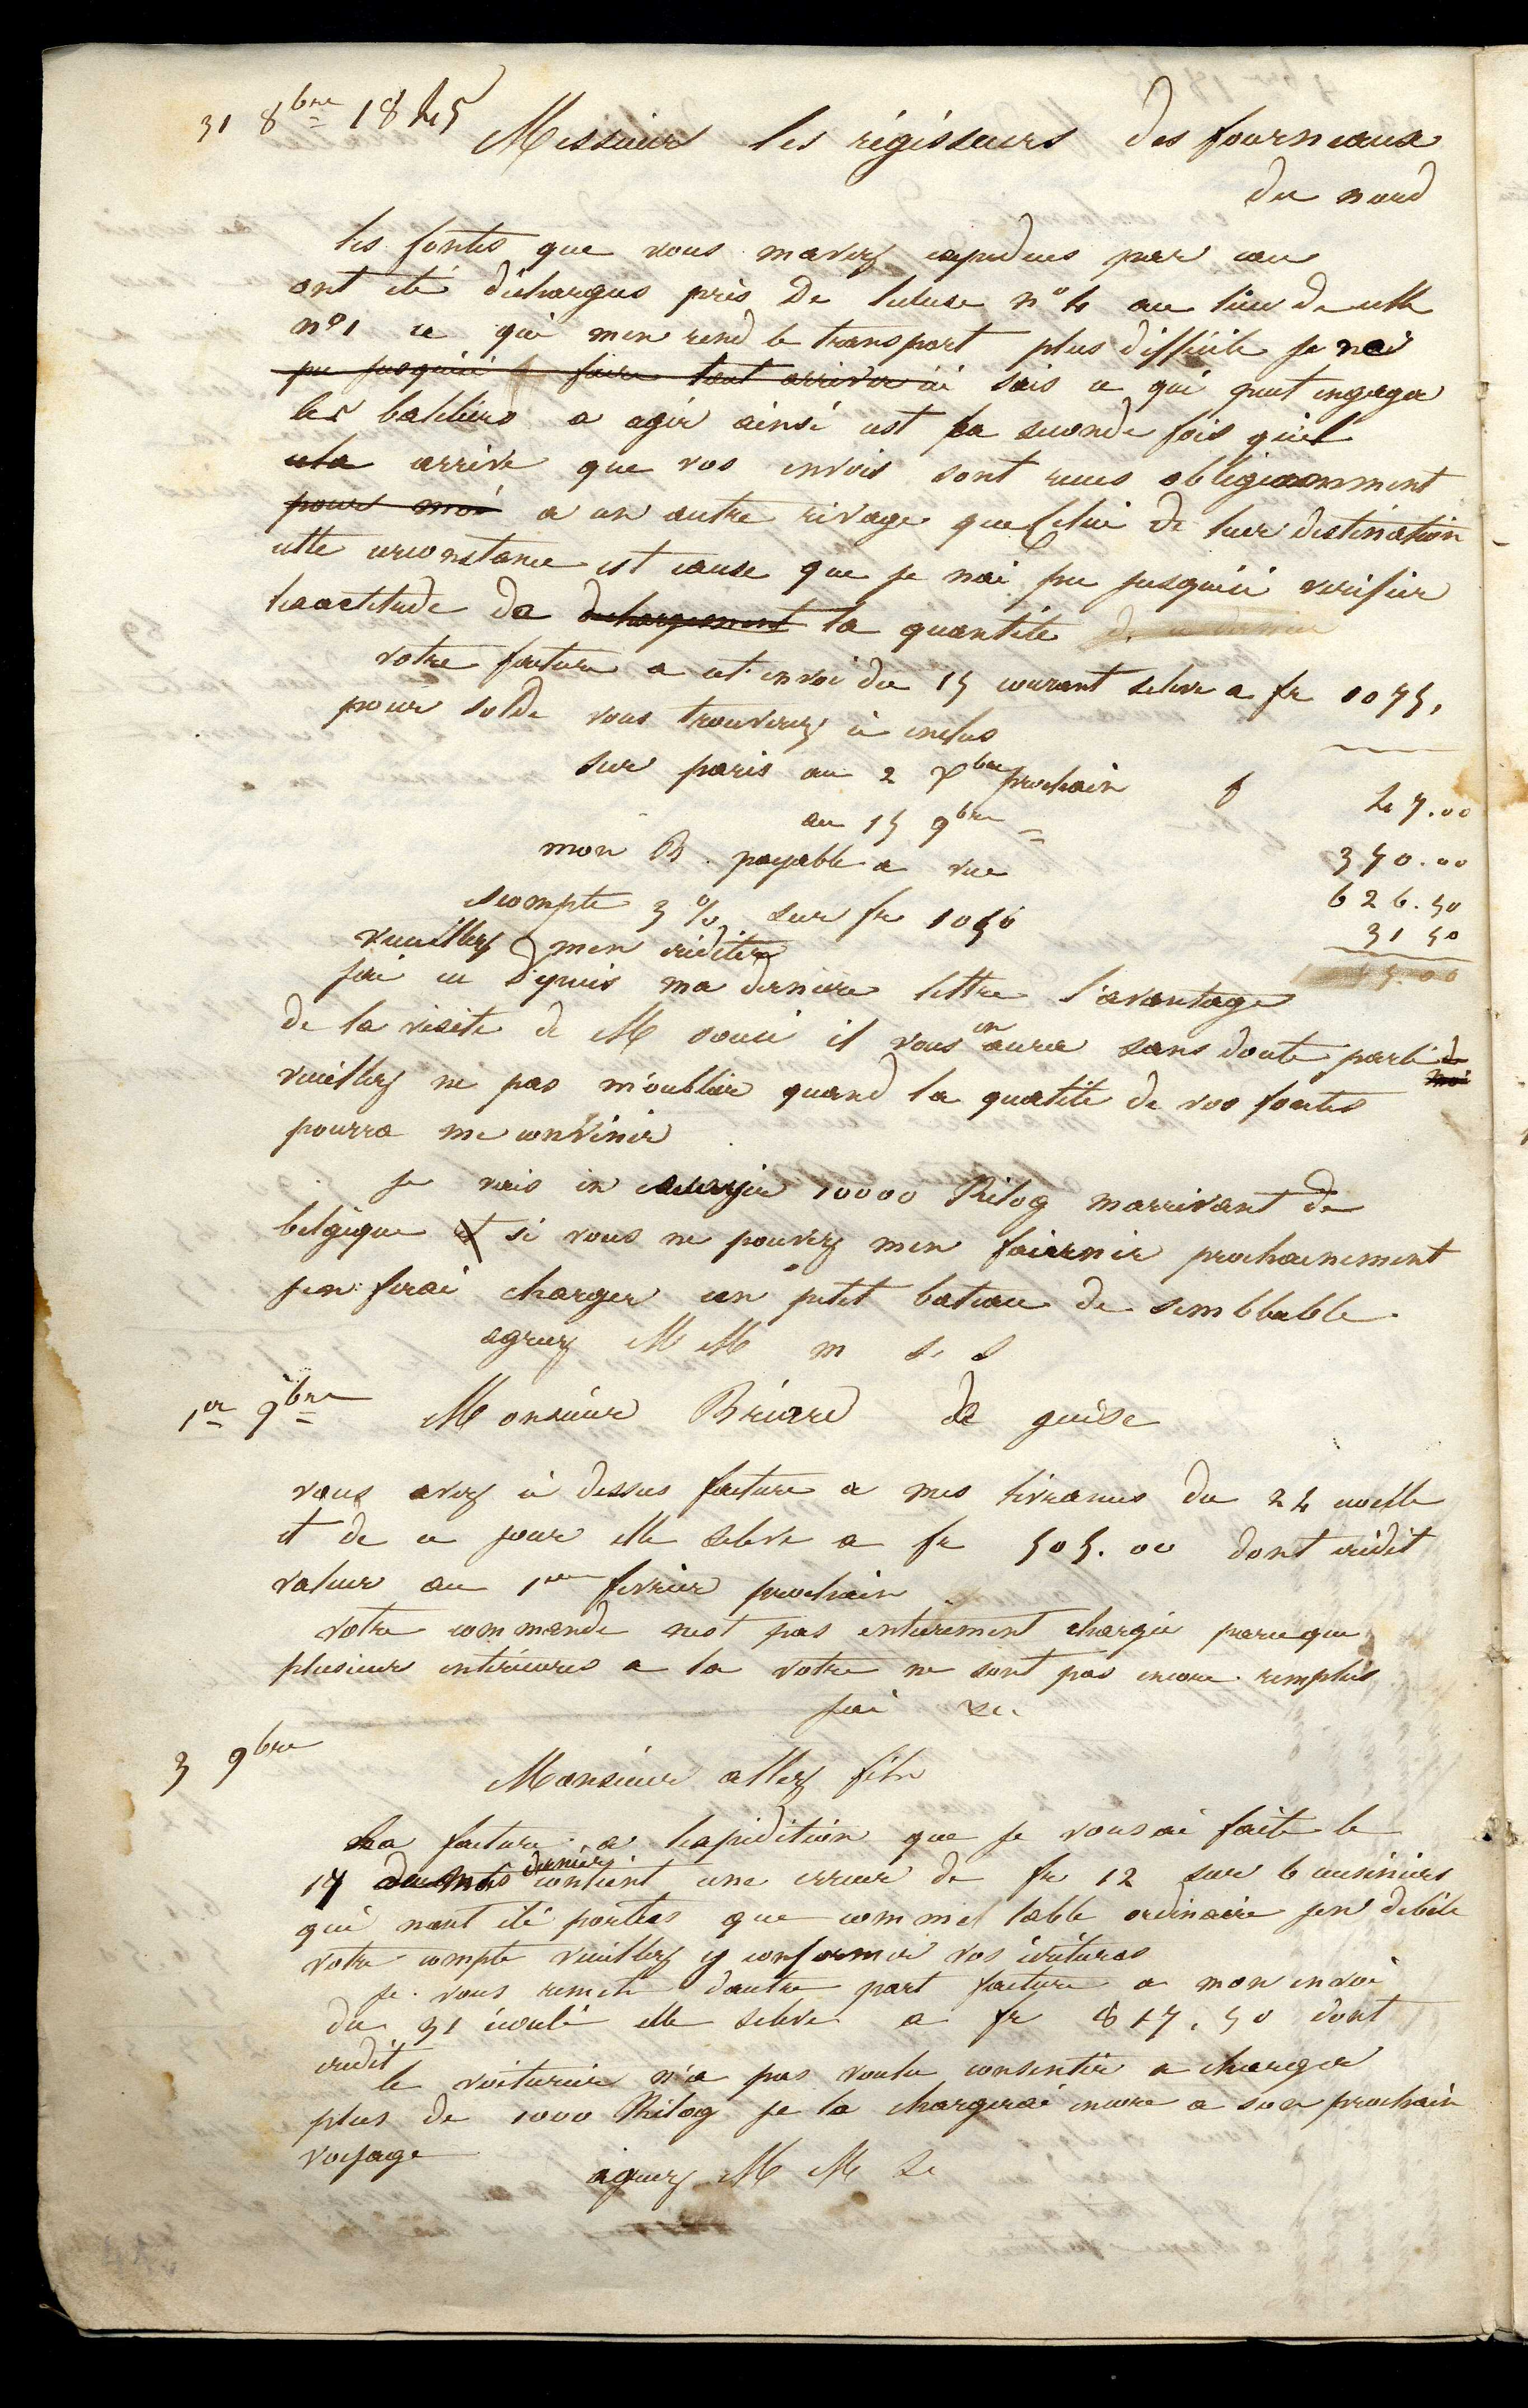 31 8bre 1845
Messieur les régisseurs des fourneaux
du nord
les fontes que vous mavez expediees par eau
ont été dèchargees près De lecluse n° 4 au lieu de celle
n° 1 ce qui men rend le transport plus difficile je nai
pu jusquici faire tout arriver ici sais ce qui peut engager
les batteliers a agir ainsi cest la seconde fois quil
cela arrive que vos envois sont recues obligeamment
pour moi a un autre rivage que Celui de leur destination
cette circonstance est cause que je nai pu jusquici verifier
lexactitude de dechargement la quantité
votre facture a cet envoi du 15 courant seleve a fr 1075,
pour solde vous trouverez ci inclus
sur paris au 2 Xbre prochain f 47.00
au 15 9bre = 370.00
mon B. payable a vue 626.50
escompte 3 % sur fr 1050 31 50
veuillez men créditer
jai eu Depuis ma derniere lettre l'avantage
de la visite de M souci il vous en aura sans doute parlé de
moi
veuillez ne pas m'oublier quand la quatité de vos fontes
pourra me convenir
je vais en 10000 Kilog marrivant de
belgique et si vous ne pouvez men fournir prochainement
jen ferai charger un petit bateau de semblable
agreez M M m s. s
1er 9bre Monsieur Briard de guise
vous avez ci dessus facture a mes livrances du 24 ecoulle
et de ce jour elle seleve a fr 505.00 dont crédit
valeur au 1er fevrier prochain
votre commande nest pas entierement chargée parceque
plusieur antérieures a la votre ne sont pas encore remplies
jai &c.
3 9bre
Monsieur allez fils
La facture a lexpedition que je vous ai faite le
17 du mois dernier contient une erreur de fr 12 sur 6 cuisinieres
qui nont été portees que comme table ordinaire jen debite
votre compte veuillez y conformer vos écritures
je vous remets dautre part facture a mon envoi
du 31 écoulé elle seleve a fr 817.50 dont
credit
le voiturier n'a pas voulu consentir a charger
plus de 1000 Kilog je la chargerai encore a son prochain
voyage
agreez M M